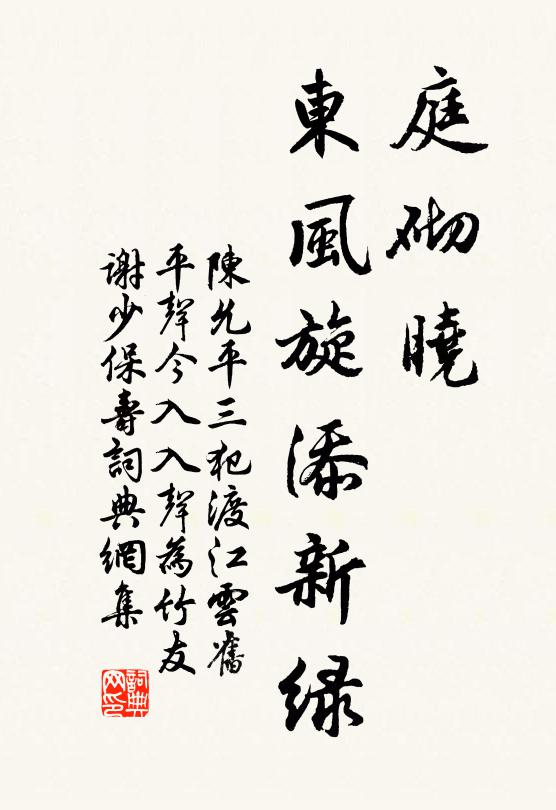 庭砌曉
東風旋添新緑
陳允平三犯渡江雲舊
平聲今入入聲為竹友
謝少保壽詞典網集
詞典网印